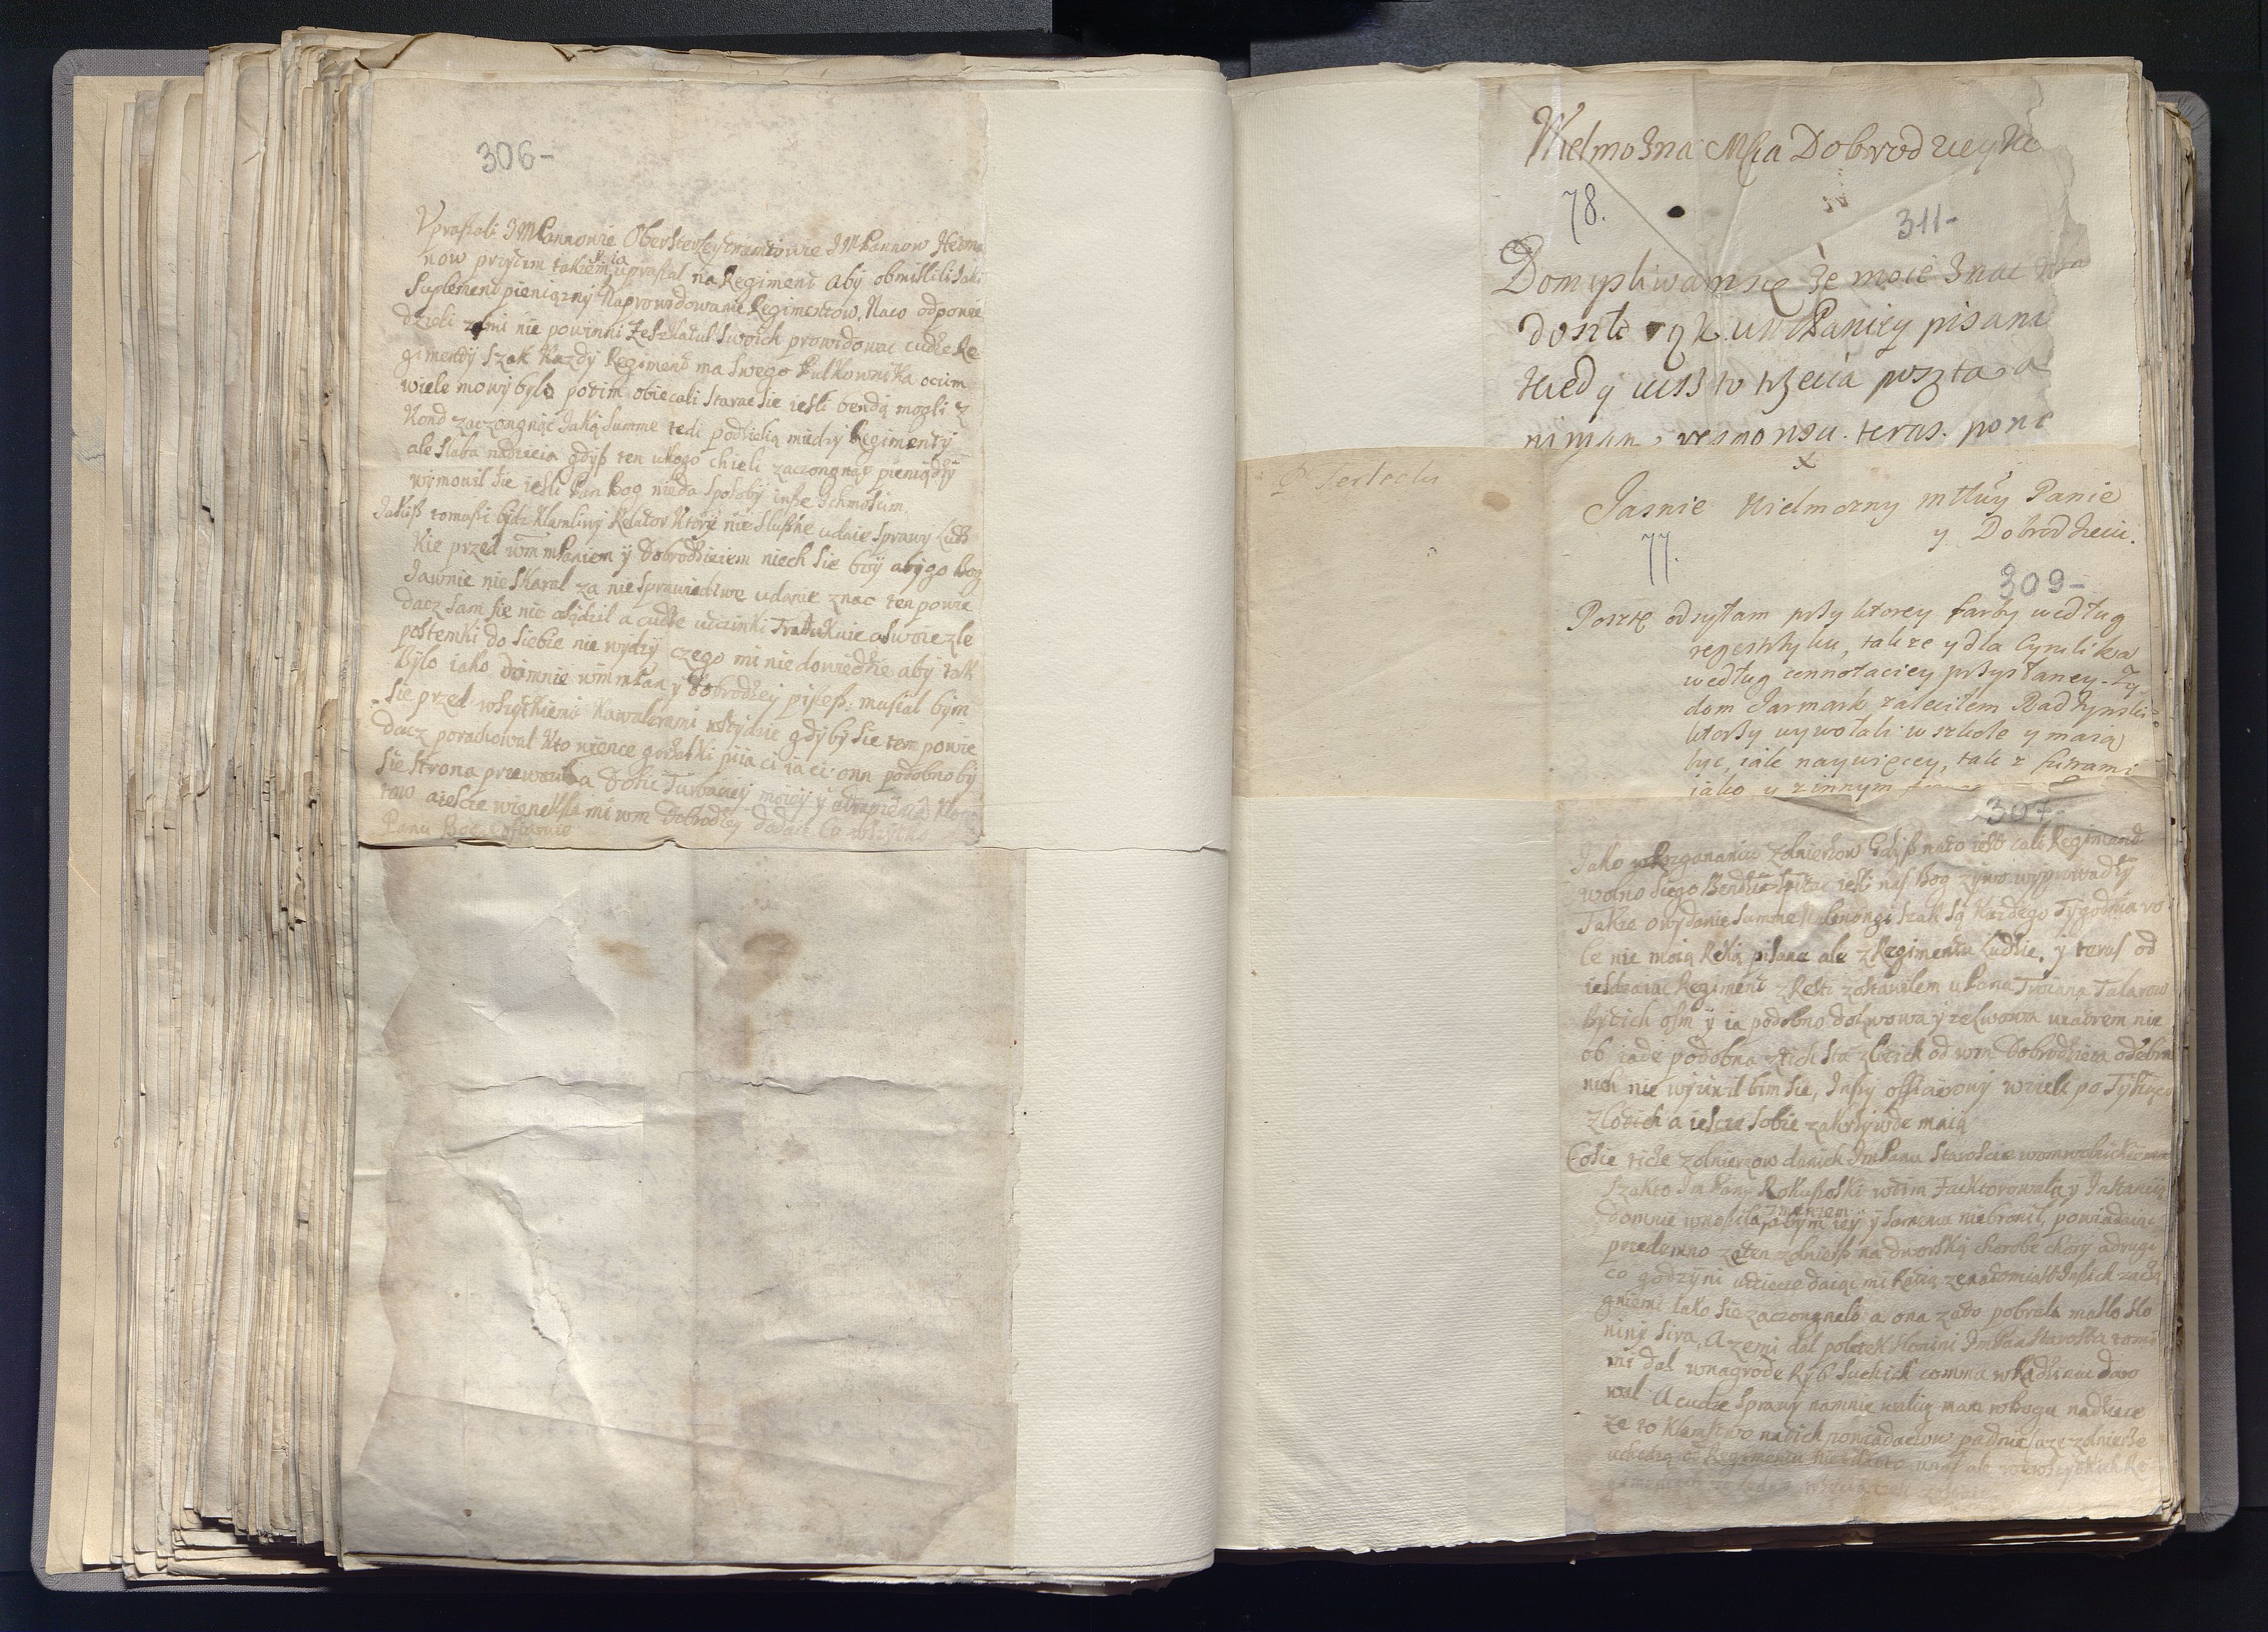 306-
Uprasali IMPannowie Obersterleytmantowie IMPannow Hetma
now przytim takiem y ia uprasial na Regiment aby obmislili Jaki
Suplement pieniązny Naprowidowanie Regimentow. Naco odpowie
dzieli zemi nie powinni Zeszkatul Swoich prowidowac cudze Re
gimenty Szak Kazdy Regiment ma Swego Pulkownika ocim
wiele mowy bylo potim obiecali Starac Sie iesli bendą mogli z
Kond zaczongnąc Jaką Summe tedi podzielią miedzy Regimenty
ale Slaba nadzieia gdyß ten ukogo chieli zaczongnąc pieniądzy
wimowil Sie iesli Pan Bog nieda Sposoby insze Ichmosciom.
Jakiß tomusi bydz Klamliwy Relator Ktory nie Sluszne udaie Sprawy Ludz
Kie przed wm mPaniem y Dobrodzieiem niech Sie boy aby go Bog
Jawnie nie Skaral za nie Sprawiedliwe udanie znac ten powie
dacz Sam Sie nie osądzil a cudze uczinki Traduknie a Swoie zle
postemki do Siebie nie wydzy czego mi niedowiedzie aby tak
bylo iako domnie wm mPan y Dobrodzey piszesz. musial bym
Sie przed wszystkiemi Kawalerami wstydzic gdyby Sie tem powie
dacz porachowal Kto wience gorzalki piia ci ia ci onn podobno by
Sie Strona przewazyla Dosic Turbaciey moiey y
tow aiescze wigneksza mi wm Dobrodzey dodaie Co wszytko
Panu Bogu
Wielmozna Mscia Dobrodzieyko
78.
311-
Domysliwam się że moie znac
doszli rąk. u WMPaniey pisani
kiedy iusz to trzecia poszta a
nimam resmonsu. teras. pone
P Terlecki
x
Jasnie Wielmozny mciwy Panie
y Dobrodzieiu.
77.
309-
Posztę odsyłam przy ktorey farby według
regestrzyku, takze y dla Cyrulika
według connotaciey przysłaney. Zy
dom Jarmark zaleciłem Radzynski
ktorzy wywołali w szkole y maią
byc, iak naywięcey, tak z futrami
iako y z innym
307-
Jako wPorganania zolnierzow Gdyß nato iest cali Regiment
wolno Siego Bendzie Spitac iesli nas Bog zywo wyprowadzy
Takze owydanie Summe Szak Są Kazdego Tygodnia ro
le nie moią Reką pisane ale z Regimentu Ludzie. y teras od
iezdzaiac Regiment z Resti zostawilem u Pana Troiana Talarow
Bytich osm y ia podobno doLwowa y zeLwowa wiatrem nie
ob iade podobna z tich Sta zlotich od wm Dobrodzieia odebra
nich nie wyzinil bim Sie, Inszy officirowy wzieli po Tysiącu
Zlotich a iescze Sobie zakrzywde maią
Cosie ticze zolnierzow danich ImPanu Staroscie
Szakto ImPani Rokuszoski wtim Facktorowala y Instancią
domnie wnosila zmenzem abym iey y Samemu niebronil, powiadaiac
przedemno zeten zolnierß na dworską chorobe chory adrugi
co godzyni uciecze daiąc mi Racią zenatomiast Inszich zacią
gniemi Jako Sie zaczongnelo a ona zato pobrala maslo Slo
niny Sira, A zemi dal polcek Slonini ImPan Starosta tomu
mi dal wnagrode Ryb Suchich
wal A cudze Sprawy namnie walią mam wBogu nadzieie
ze to Klamstwo natich powiadaczow padnie
uciekaią od Regimentu